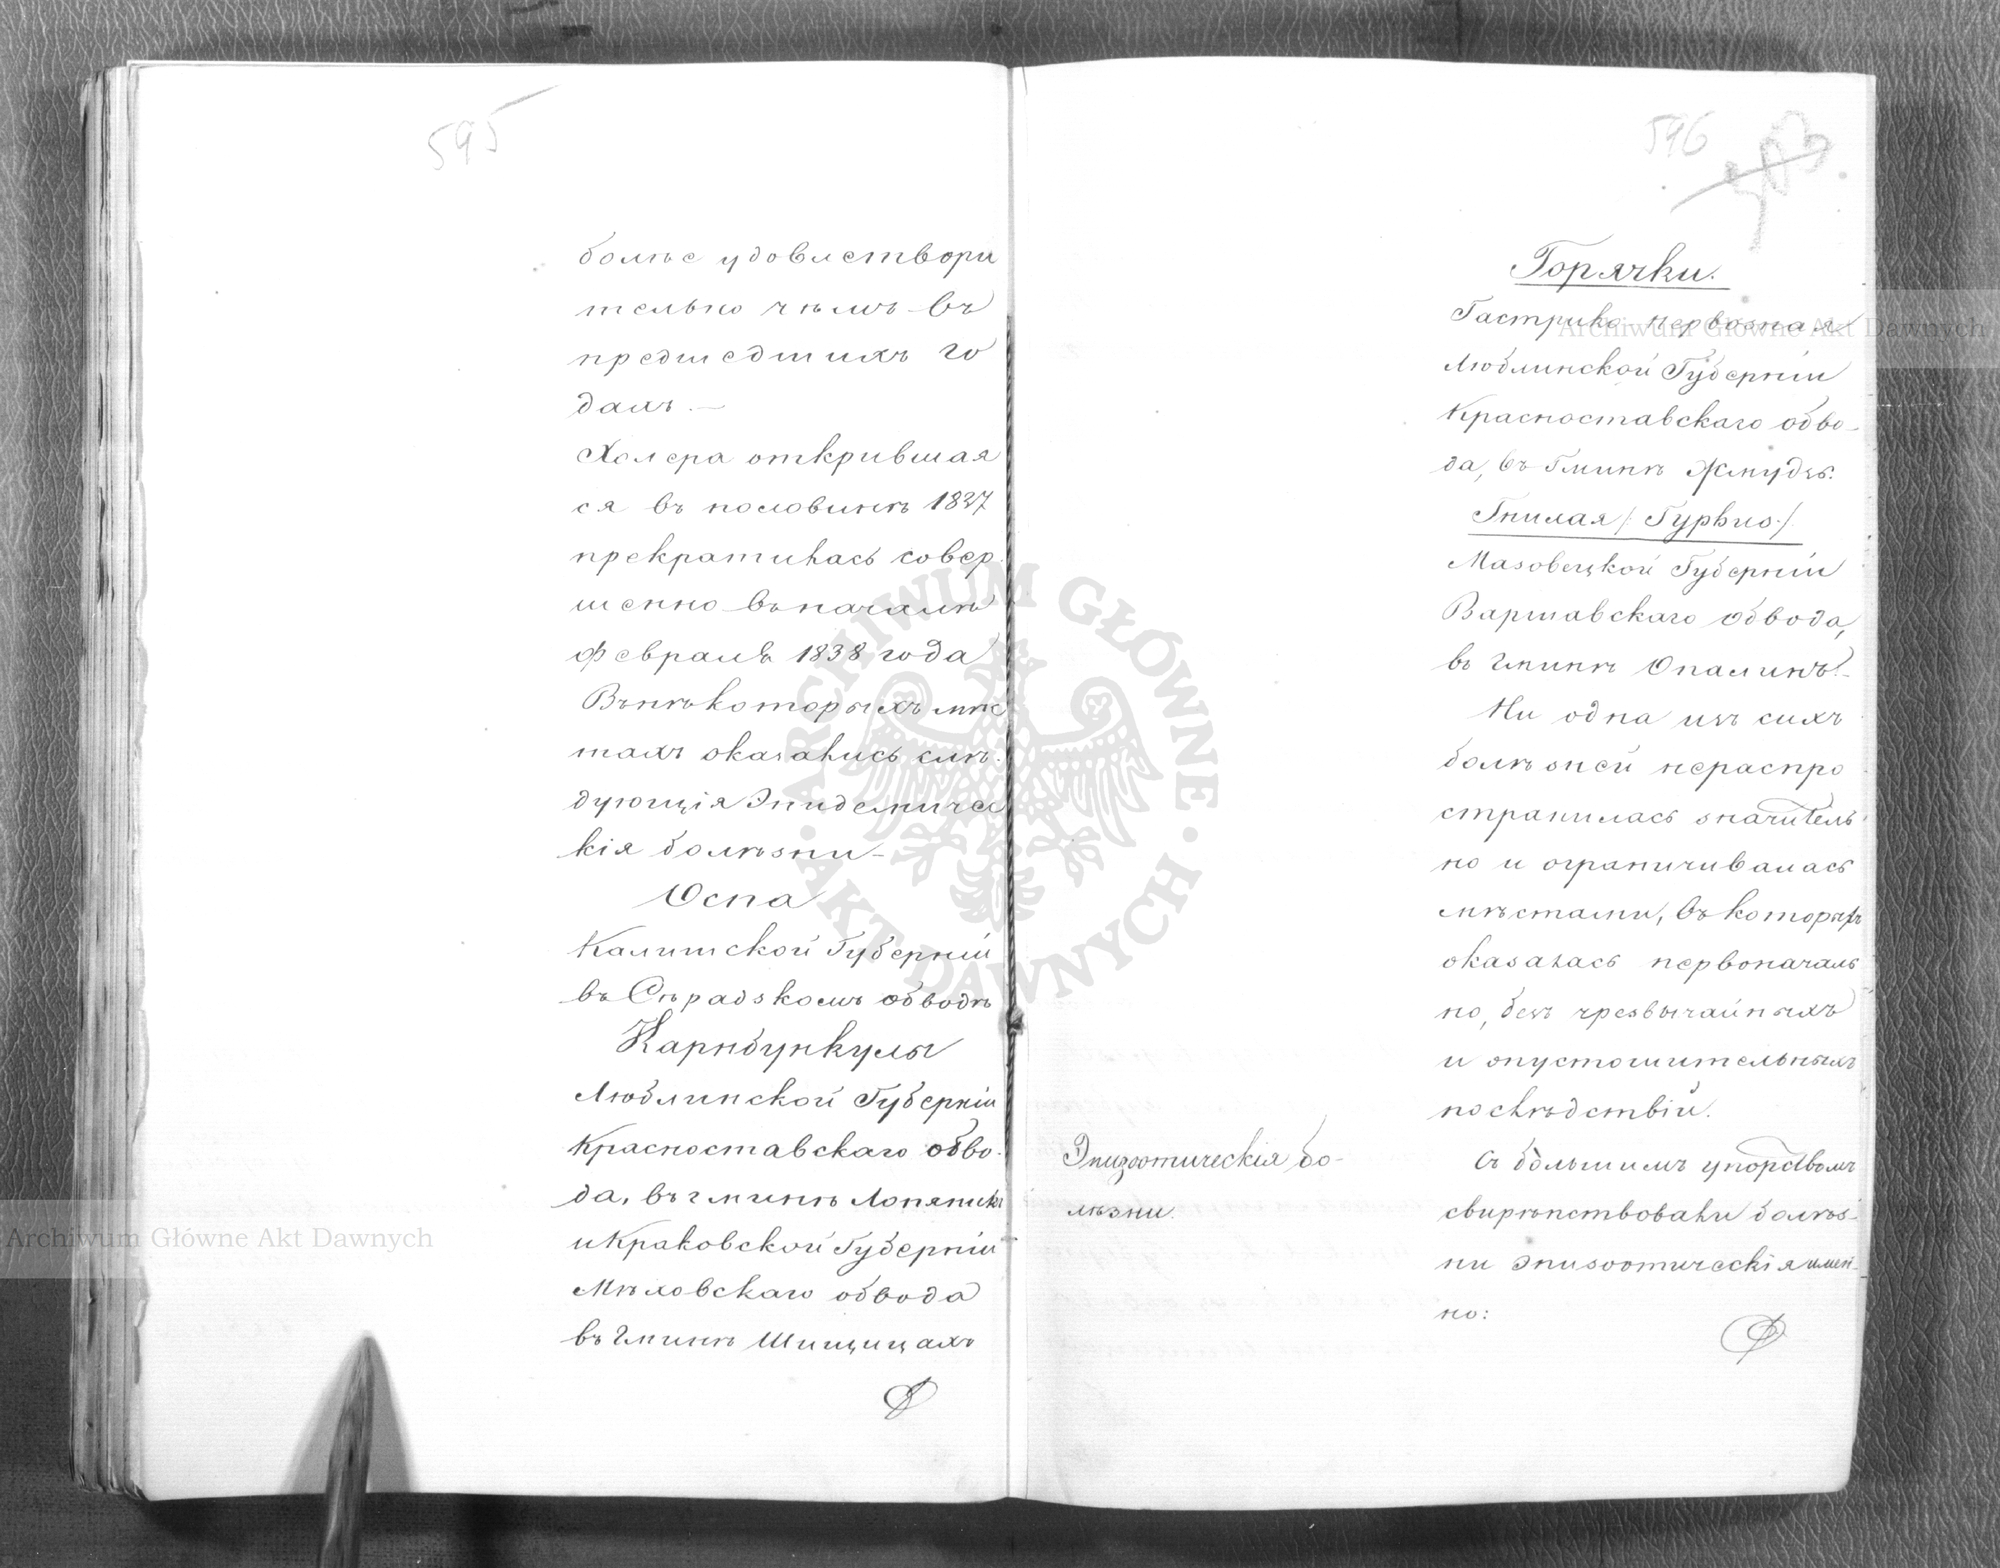 595
болѣе удовлетвори
тельно чѣмъ въ
предшедшихъ го
дахъ. —
Холера открившая
ся въ половинѣ 1837
прекратилась совер
шенно въ началѣ
февраля 1838 года
Въ нѣкоторыхъ мѣс
тахъ оказались слѣ
дующія Эпидемичес
кія болѣзни –
Оспа
Калишской Губерніи
въ Сѣрадзкомъ обводѣ
Карнбункулы
Люблинской Губерніи
Красноставскаго обво
да, въ гминѣ
и Краковской Губерніи
Мѣховскаго обвода
въ Гминѣ Шищицахъ
596
Горячки.
Гастрико нервозная
Люблинской Губерніи
Красноставскаго обво-
да, въ Гминѣ Жмудзь.
Гнилая
Мазовецкой Губерніи
Варшавскаго обвода,
въ Гминѣ Опалинъ. –
Ни одна изъ сихъ
болѣзней нераспро
странилась значитель
но и ограничивалась
мѣстами, въ которыхъ
оказалась первоначаль
но, безъ чрезвычайныхъ
и опустошительныхъ
послѣдствій.
Эпизоотическія бо-
лѣзни.
Съ большимъ упорствомъ
свирѣпствовали болѣз-
ни эпизоотическія имен-
но:
Archiwum Główne Akt Dawnych
Archiwum Główne Akt Dawnych
ARCHIWUM GŁÓWNE · AKT DAWNYCH ·